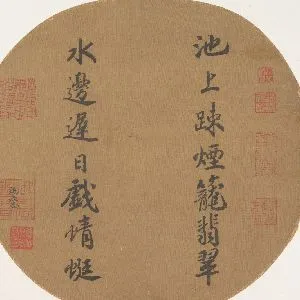 池上踈煙籠翡翠
水邊遲日戲蜻蜓